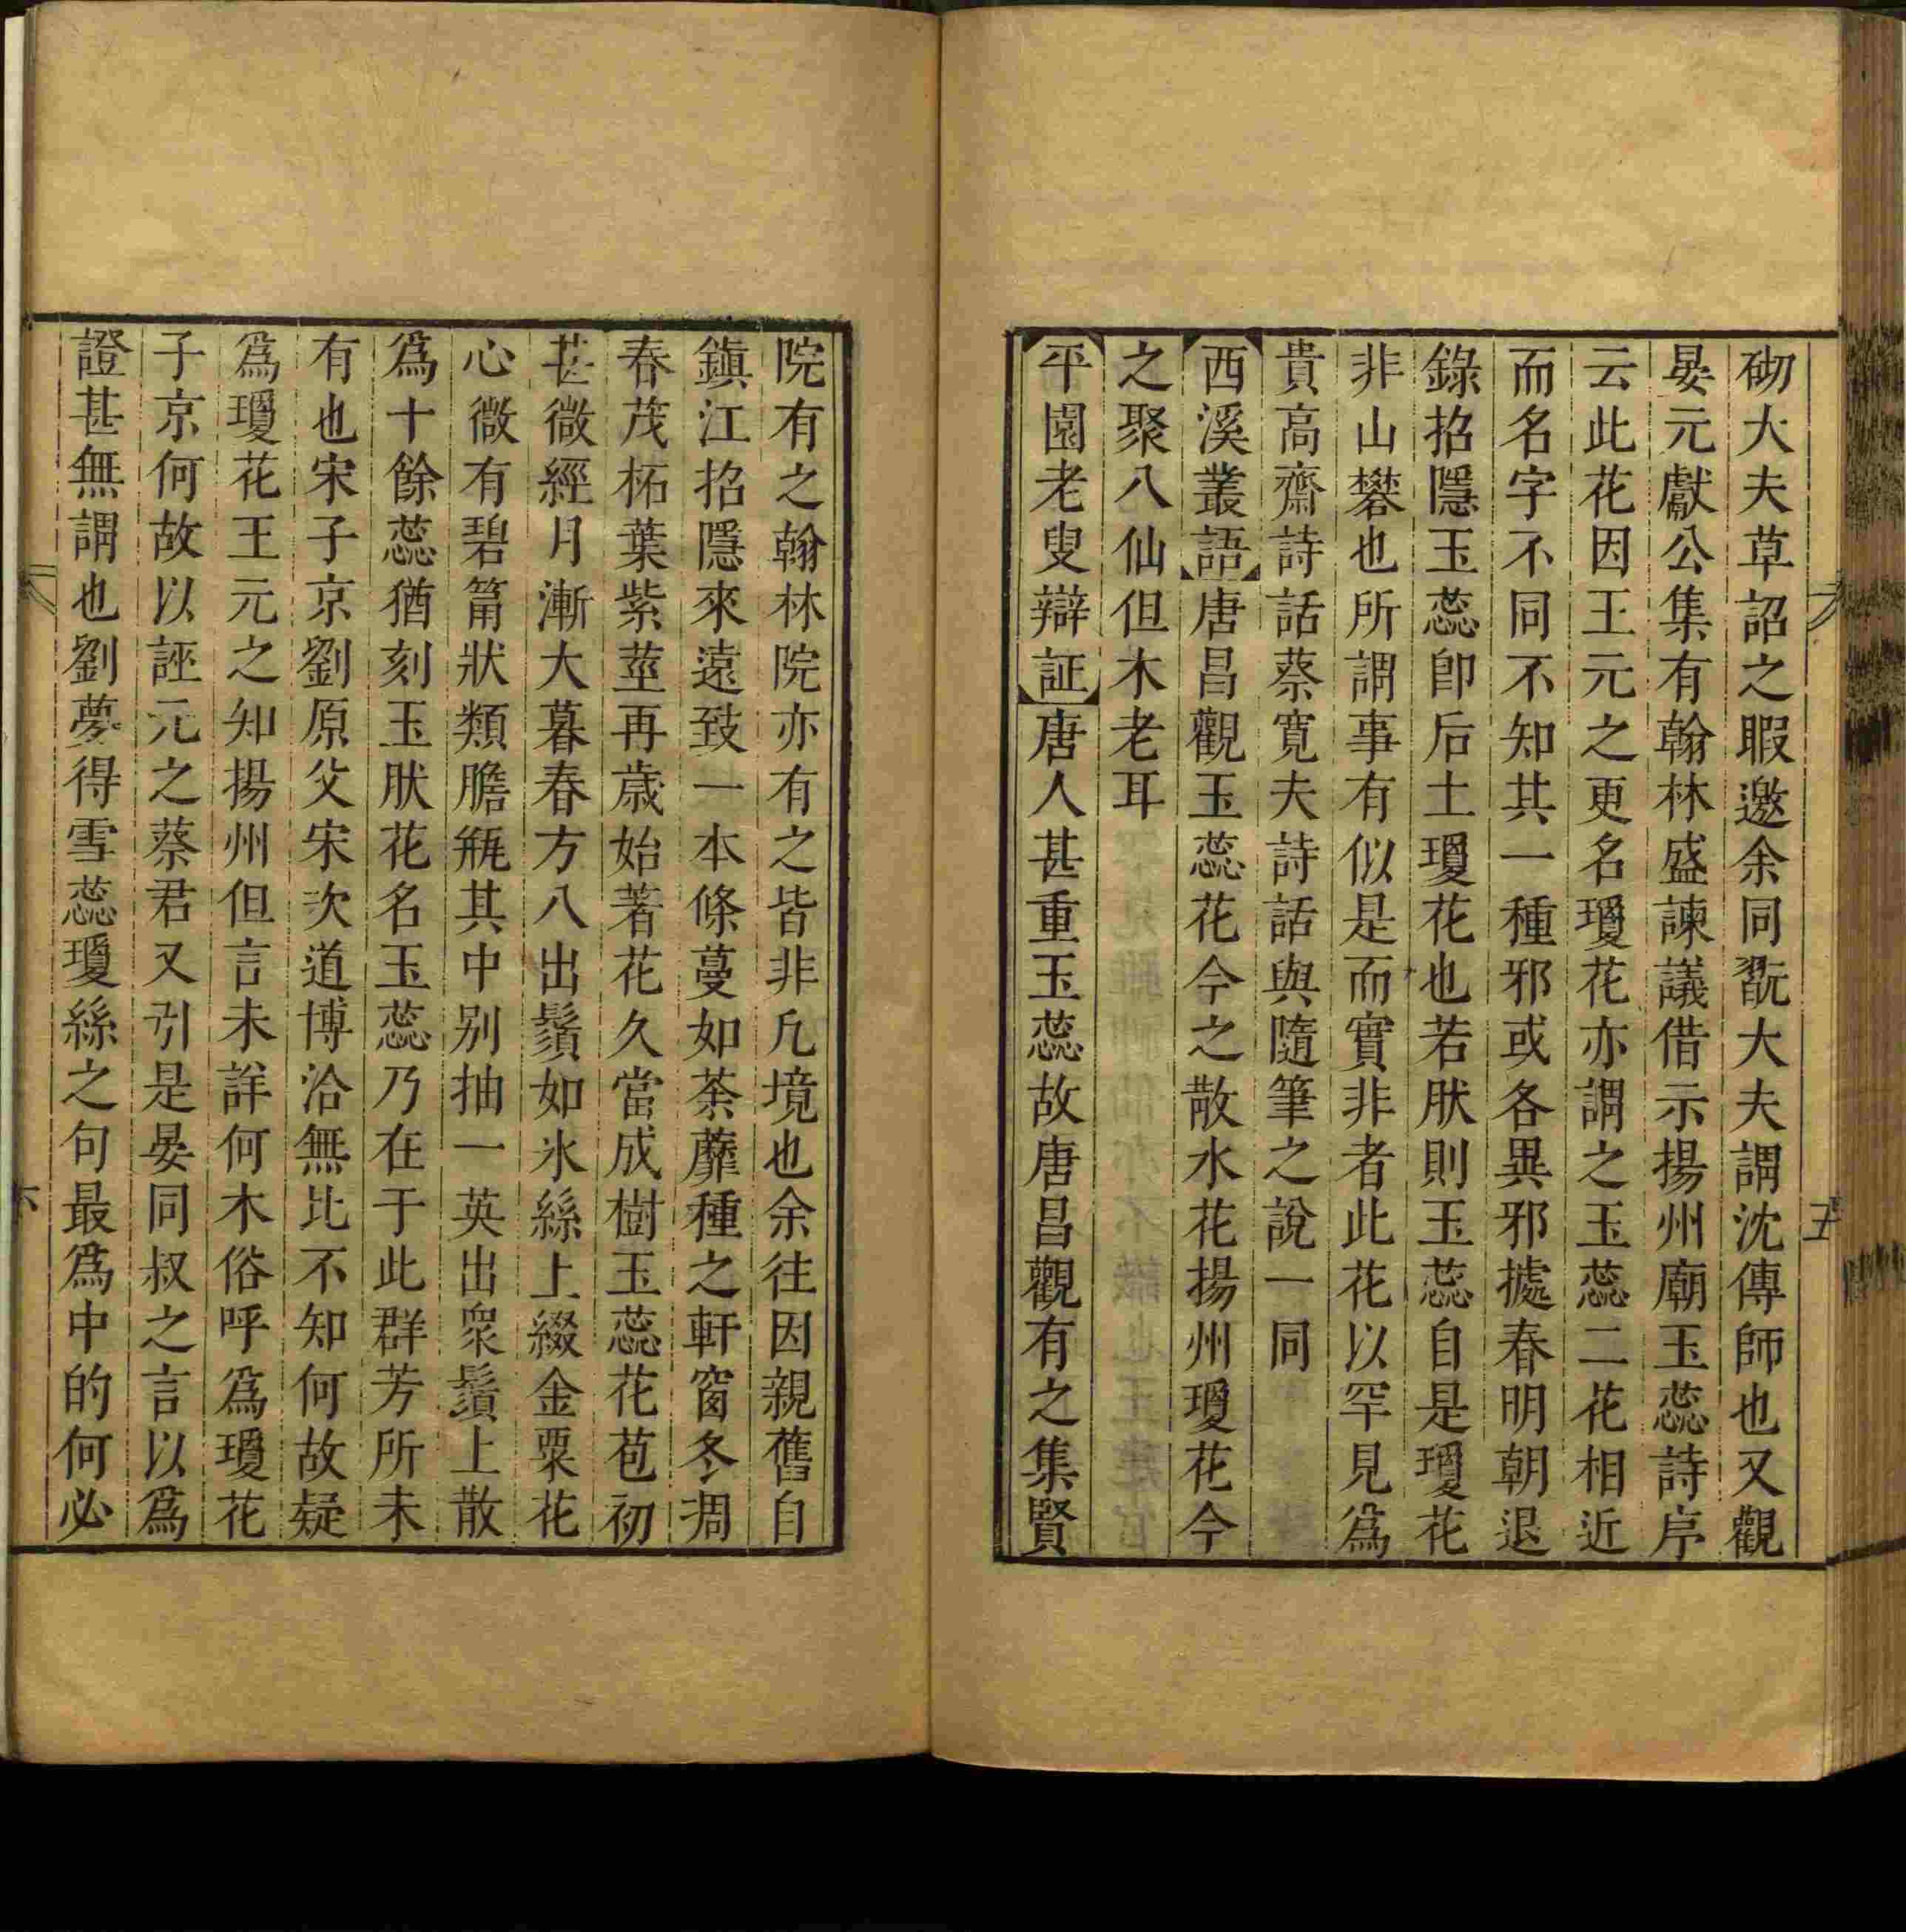 砌大夫草詔之暇邀余同翫大夫謂沈傳師也又觀
晏元獻公集有翰林盛諫議借示揚州廟玉蕊詩序
云此花因王元之更名瓊花亦謂之玉蕊二花相近
而名字不同不知其一種邪或各異邪據春明朝退
錄招隱玉蕊卽后土瓊花也若肰則玉蕊自是瓊花
非山礬也所謂事有似是而實非者此花以罕見爲
貴高齋詩話蔡寬夫詩話與隨筆之說一同
西溪叢語唐昌觀玉蕊花今之散水花揚州瓊花今
之聚八仙但木老耳
平園老叟辯証唐人甚重玉蕊故唐昌觀有之集賢
五
院有之翰林院亦有之皆非凡境也余往因親舊自
鎮江招隱來遠致一本條蔓如荼蘼種之軒窗冬凋
春茂柘葉紫莖再歲始著花久當成樹玉蕊花苞初
甚微經月漸大暮春方八出鬚如氷絲上綴金粟花
心微有碧筩狀類膽瓶其中别抽一英出衆鬚上散
爲十餘蕊猶刻玉肰花名玉蕊乃在于此群芳所未
有也宋子京劉原父宋次道博洽無比不知何故疑
爲瓊花王元之知揚州但言未詳何木俗呼爲瓊花
子京何故以誣元之蔡君又引是晏同叔之言以爲
證甚無謂也劉夢得雪蕊瓊絲之句最爲中的何必
六